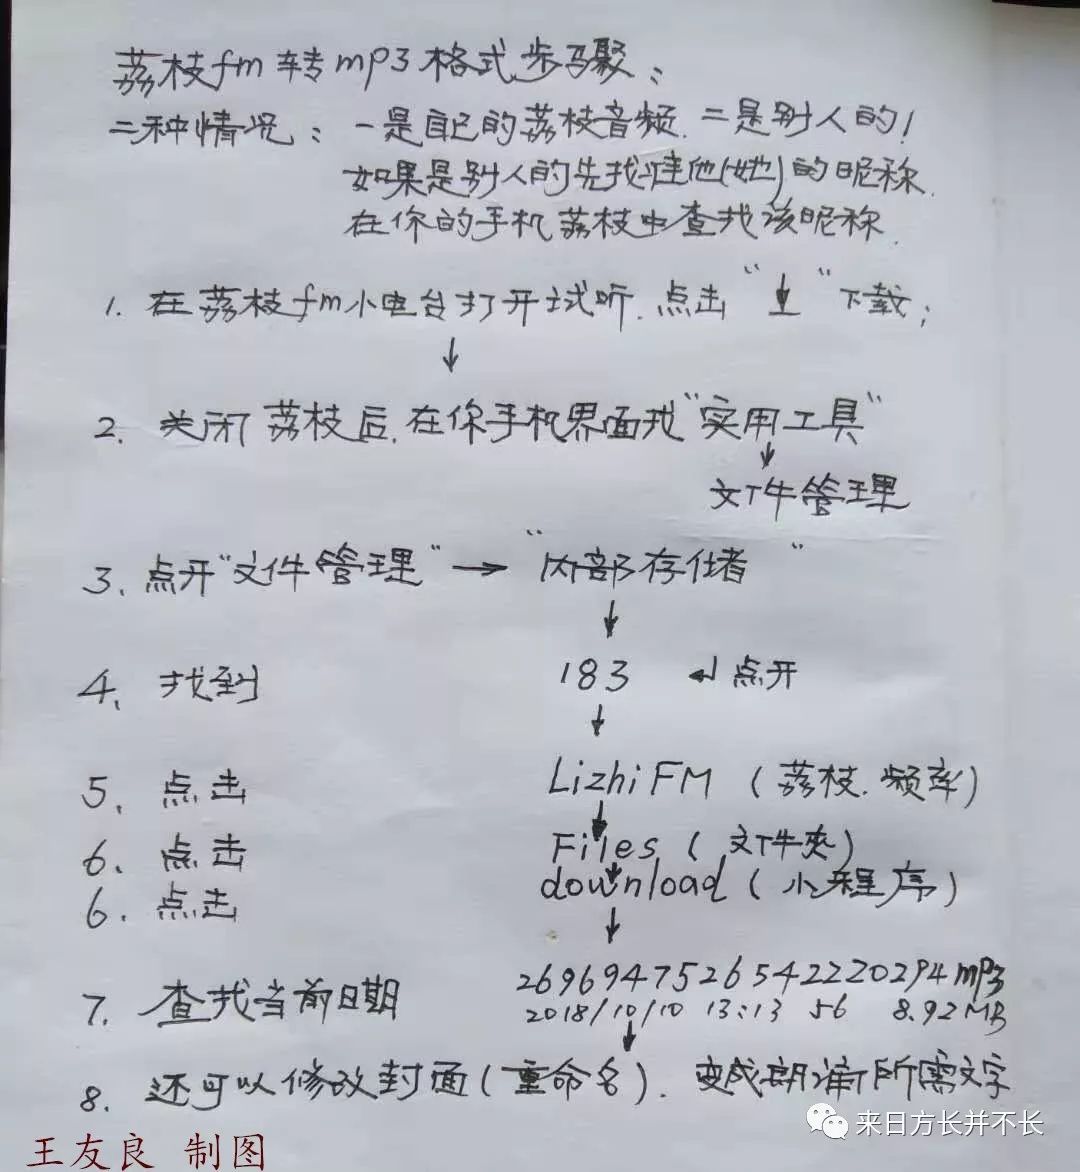 荔枝fm转mp3格式步骤：
二种情况：一是自己的荔枝音频．二是别人的！
如果是别人的先找准他(她)的昵称．
在你的手机荔枝中查找该昵称．
1．在荔枝fm小电台打开试听．点击“↓”下载；
↓
2．关闭荔枝后．在你手机界面找“实用工具”
↓
文件管理
3、点开“文件管理”→“内部存储”
↓
4、找到 183 ↲点开
↓
5、点击 LizhiFM（荔枝．频率）
↓
6．点击 Files（文件夹）
↓
6．点击 download（小程序）
↓
7．查找当前日期 2696947526542220294mp3
2018/10/10 13:13 56 8.92MB
↓
8．还可以修改封面(重命名)．变成朗诵所需文字
来日方长并不长
王友良 制图